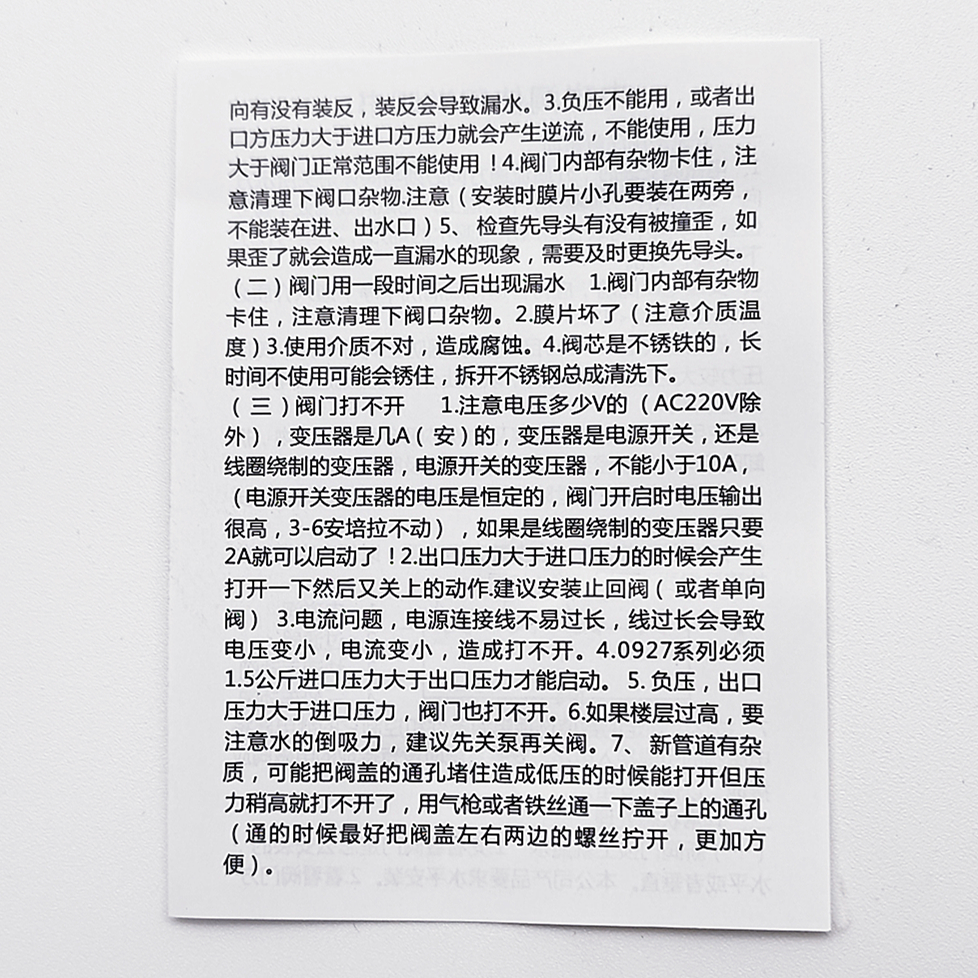 向有没有装反，装反会导致漏水。3.负压不能用，或者出
口方压力大于进口方压力就会产生逆流，不能使用，压力
大于阀门正常范围不能使用！4.阀门内部有杂物卡住，注
意清理下阀口杂物.注意（安装时膜片小孔要装在两旁，
不能装在进、出水口）5、 检查先导头有没有被撞歪，如
果歪了就会造成一直漏水的现象，需要及时更换先导头。
（二）阀门用一段时间之后出现漏水 1.阀门内部有杂物
卡住，注意清理下阀口杂物。2.膜片坏了（注意介质温
度）3.使用介质不对，造成腐蚀。4.阀芯是不锈铁的，长
时间不使用可能会锈住，拆开不锈钢总成清洗下。
（三）阀门打不开 1.注意电压多少V的（AC220V除
外），变压器是几A（安）的，变压器是电源开关，还是
线圈绕制的变压器，电源开关的变压器，不能小于10A，
（电源开关变压器的电压是恒定的，阀门开启时电压输出
很高，3-6安培拉不动），如果是线圈绕制的变压器只要
2A就可以启动了！2.出口压力大于进口压力的时候会产生
打开一下然后又关上的动作.建议安装止回阀（或者单向
阀） 3.电流问题，电源连接线不易过长，线过长会导致
电压变小，电流变小，造成打不开。4.0927系列必须
1.5公斤进口压力大于出口压力才能启动。5.负压，出口
压力大于进口压力，阀门也打不开。6.如果楼层过高，要
注意水的倒吸力，建议先关泵再关阀。7、 新管道有杂
质，可能把阀盖的通孔堵住造成低压的时候能打开但压
力稍高就打不开了，用气枪或者铁丝通一下盖子上的通孔
（通的时候最好把阀盖左右两边的螺丝拧开，更加方
便）。